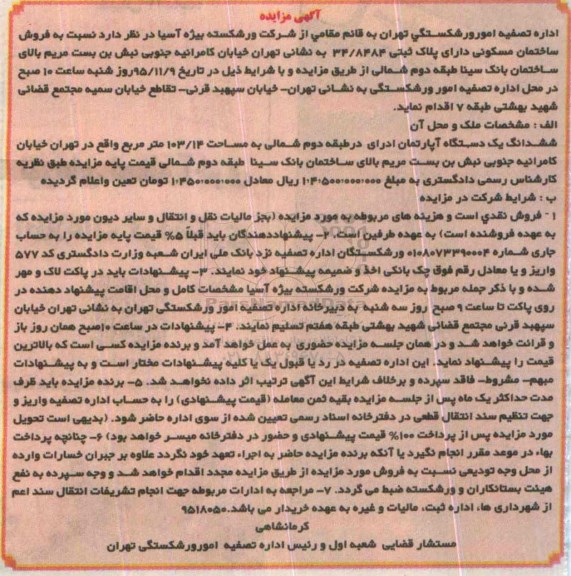 آگهی مزایده
اداره تصفیه امورورشکستگي تهران به قائم مقامي از شرکت ورشکسته بیژه آسیا در نظر دارد نسبت به فروش
ساختمان مسکونی دارای پلاک ثبتی ۳۴/۸۴۸۴ به نشانی تهران خیابان کامرانیه جنوبی نبش بن بست مریم بالای
ساختمان بانک سینا طبقه دوم شمالی از طریق مزایده و با شرایط ذیل در تاریخ ۹۵/۱۱/۹روز شنبه ساعت ۱۰ صبح
در محل اداره تصفیه امور ورشکستگی به نشانی تهران- خیابان سپهبد قرنی- تقاطع خیابان سمیه مجتمع قضائی
شهید بهشتی طبقه ۷ اقدام نماید.
الف : مشخصات ملک و محل آن
ششدانگ یک دستگاه آپارتمان اداری درطبقه دوم شمالی به مساحت ۱۰۳/۱۴ متر مربع واقع در تهران خیابان
کامرانیه جنوبی نبش بن بست مریم بالای ساختمان بانک سینا طبقه دوم شمالی قیمت پایه مزایده طبق نظریه
کارشناس رسمی دادگستری به مبلغ ۱۰،۴۵۰۰،۰۰۰،۰۰۰ ریال معادل ۱،۴۵۰،۰۰۰،۰۰۰ تومان تعین واعلام گردیده
ب : شرایط شرکت در مزایده
۱- فروش نقدي است و هزینه های مربوطه به مورد مزایده (بجز مالیات نقل و انتقال و سایر دیون مورد مزایده که
به عهده فروشنده است) به عهده طرفین است. ۲- پیشنهاددهندگان باید قبلاً ۵% قیمت پایه مزایده را به حساب
جاری شماره ۰۱۰۸۰۷۳۳۹۰۰۰۴ ورشکستگان اداره تصفیه نزد بانک ملی ایران شعبه وزارت دادگستری کد ۵۷۷
واریز و یا معادل رقم فوق چک بانکی اخذ و ضمیمه پیشنهاد خود نمایند. ۳- پیشنهادات باید در پاکت لاک و مهر
شده و با ذکر جمله مربوط به مزایده شرکت ورشکسته بیژه آسیا مشخصات کامل و محل اقامت پیشنهاد دهنده در
روی پاکت تا ساعت ۹ صبح روز سه شنبه به دبیرخانه اداره تصفیه امور ورشکستگی تهران به نشانی تهران خیابان
سپهبد قرنی مجتمع قضائی شهید بهشتی طبقه هفتم تسلیم نمایند. ۴- پیشنهادات در ساعت ۱۰صبح همان روز باز
و قرائت خواهد شد و در همان جلسه مزایده حضوری به عمل خواهد آمد و برنده مزایده کسی است که بالاترین
قیمت را پیشنهاد نماید. این اداره تصفیه در رد یا قبول یک یا کلیه پیشنهادات مختار است و به پیشنهادات
مبهم- مشروط- فاقد سپرده و برخلاف شرایط این آگهی ترتیب اثر داده نخواهد شد. ۵- برنده مزایده باید ظرف
مدت حداکثر یک ماه پس از جلسه مزایده بقیه ثمن معامله (قیمت پیشنهادی) را به حساب اداره تصفیه واریز و
جهت تنظیم سند انتقال قطعی در دفترخانه اسناد رسمی تعیین شده از سوی اداره حاضر شود. (بدیهی است تحویل
مورد مزایده پس از پرداخت ۱۰۰% قیمت پیشنهادی و حضور در دفترخانه میسر خواهد بود) ۶- چنانچه پرداخت
بهاء در موعد مقرر انجام نگیرد یا آنکه برنده مزایده حاضر به اجراء تعهد خود نگردد علاوه بر جبران خسارات وارده
از محل وجه تودیعی نسبت به فروش مورد مزایده از طریق مزایده مجدد اقدام خواهد شد و وجه سپرده به نفع
هیئت بستانکاران و ورشکسته ضبط می گردد. ۷- مراجعه به ادارات مربوطه جهت انجام تشریفات انتقال سند اعم
از شهرداری ها، اداره ثبت، مالیات و غیره به عهده خریدار می باشد.۹۵۱۸۰۵۰
کرمانشاهی
مستشار قضایی شعبه اول و رئیس اداره تصفیه امورورشکستگی تهران